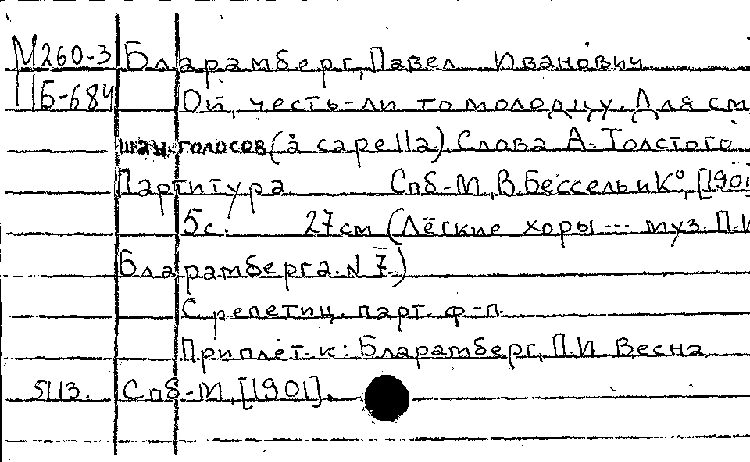 М260-3 Бларамберг, Павел Иванович
ПБ-684 Ой, честь-ли то молодцу. Для см
шан. голосов (à capella) Слова А. Толстого
Партитура Спб-М, В. Бессель и К°, [1901
5с. 27см (Лёгкие хоры --- муз. П.И
Бларамберга. N 7.)
С репетиц. парт. ф-п.
Приплет. к: Бларамберг, П.И. Весна
5113. Спб-М, [1901].